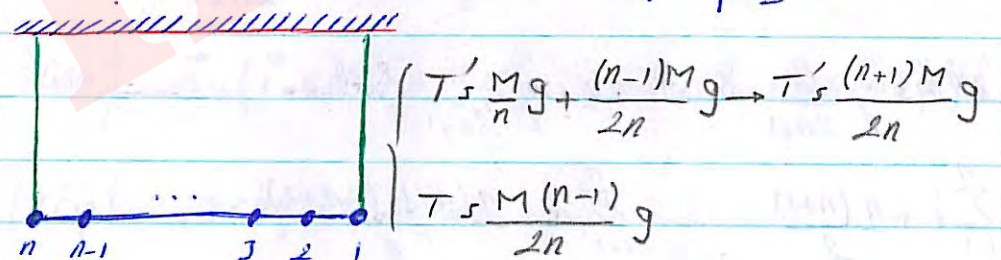 T's M/n g + (n-1)M/2n g → T's (n+1)M/2n g
T s M(n-1)/2n g
n n-1 ... 3 2 1